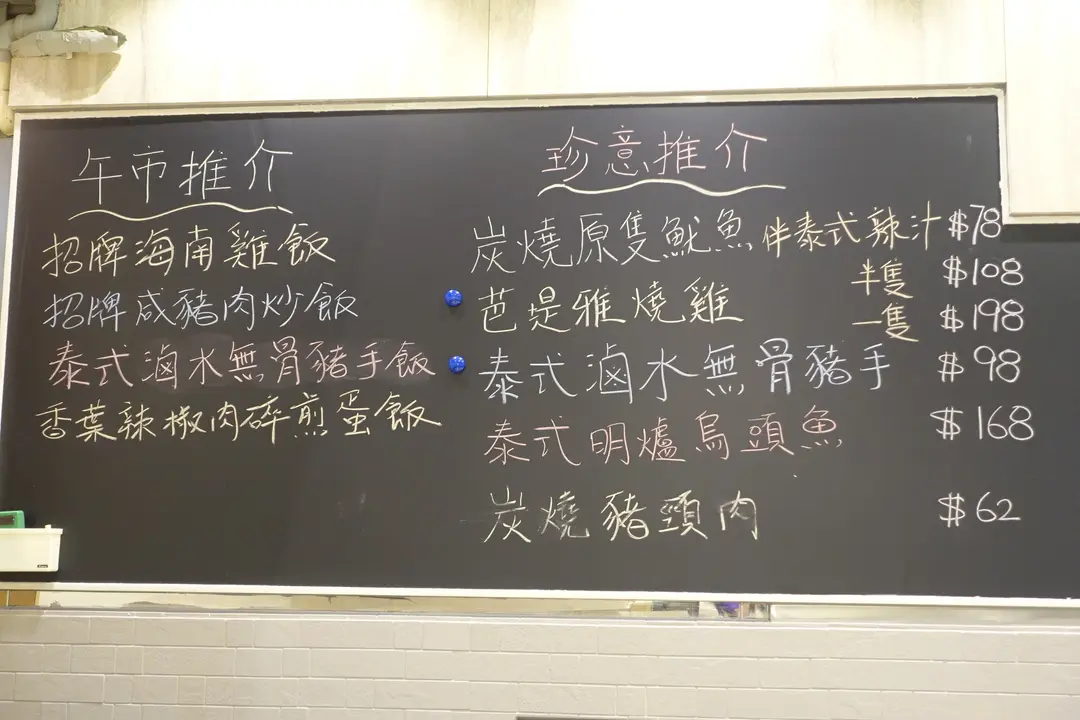 午市推介
招牌海南雞飯
招牌咸豬肉炒飯
泰式滷水無骨豬手飯
香葉辣椒肉碎煎蛋飯
珍意推介
炭燒原隻魷魚伴泰式辣汁 $78
芭堤雅燒雞 半隻 $108
一隻 $198
泰式滷水無骨豬手 $98
泰式明爐烏頭魚 $168
炭燒豬頸肉 $62